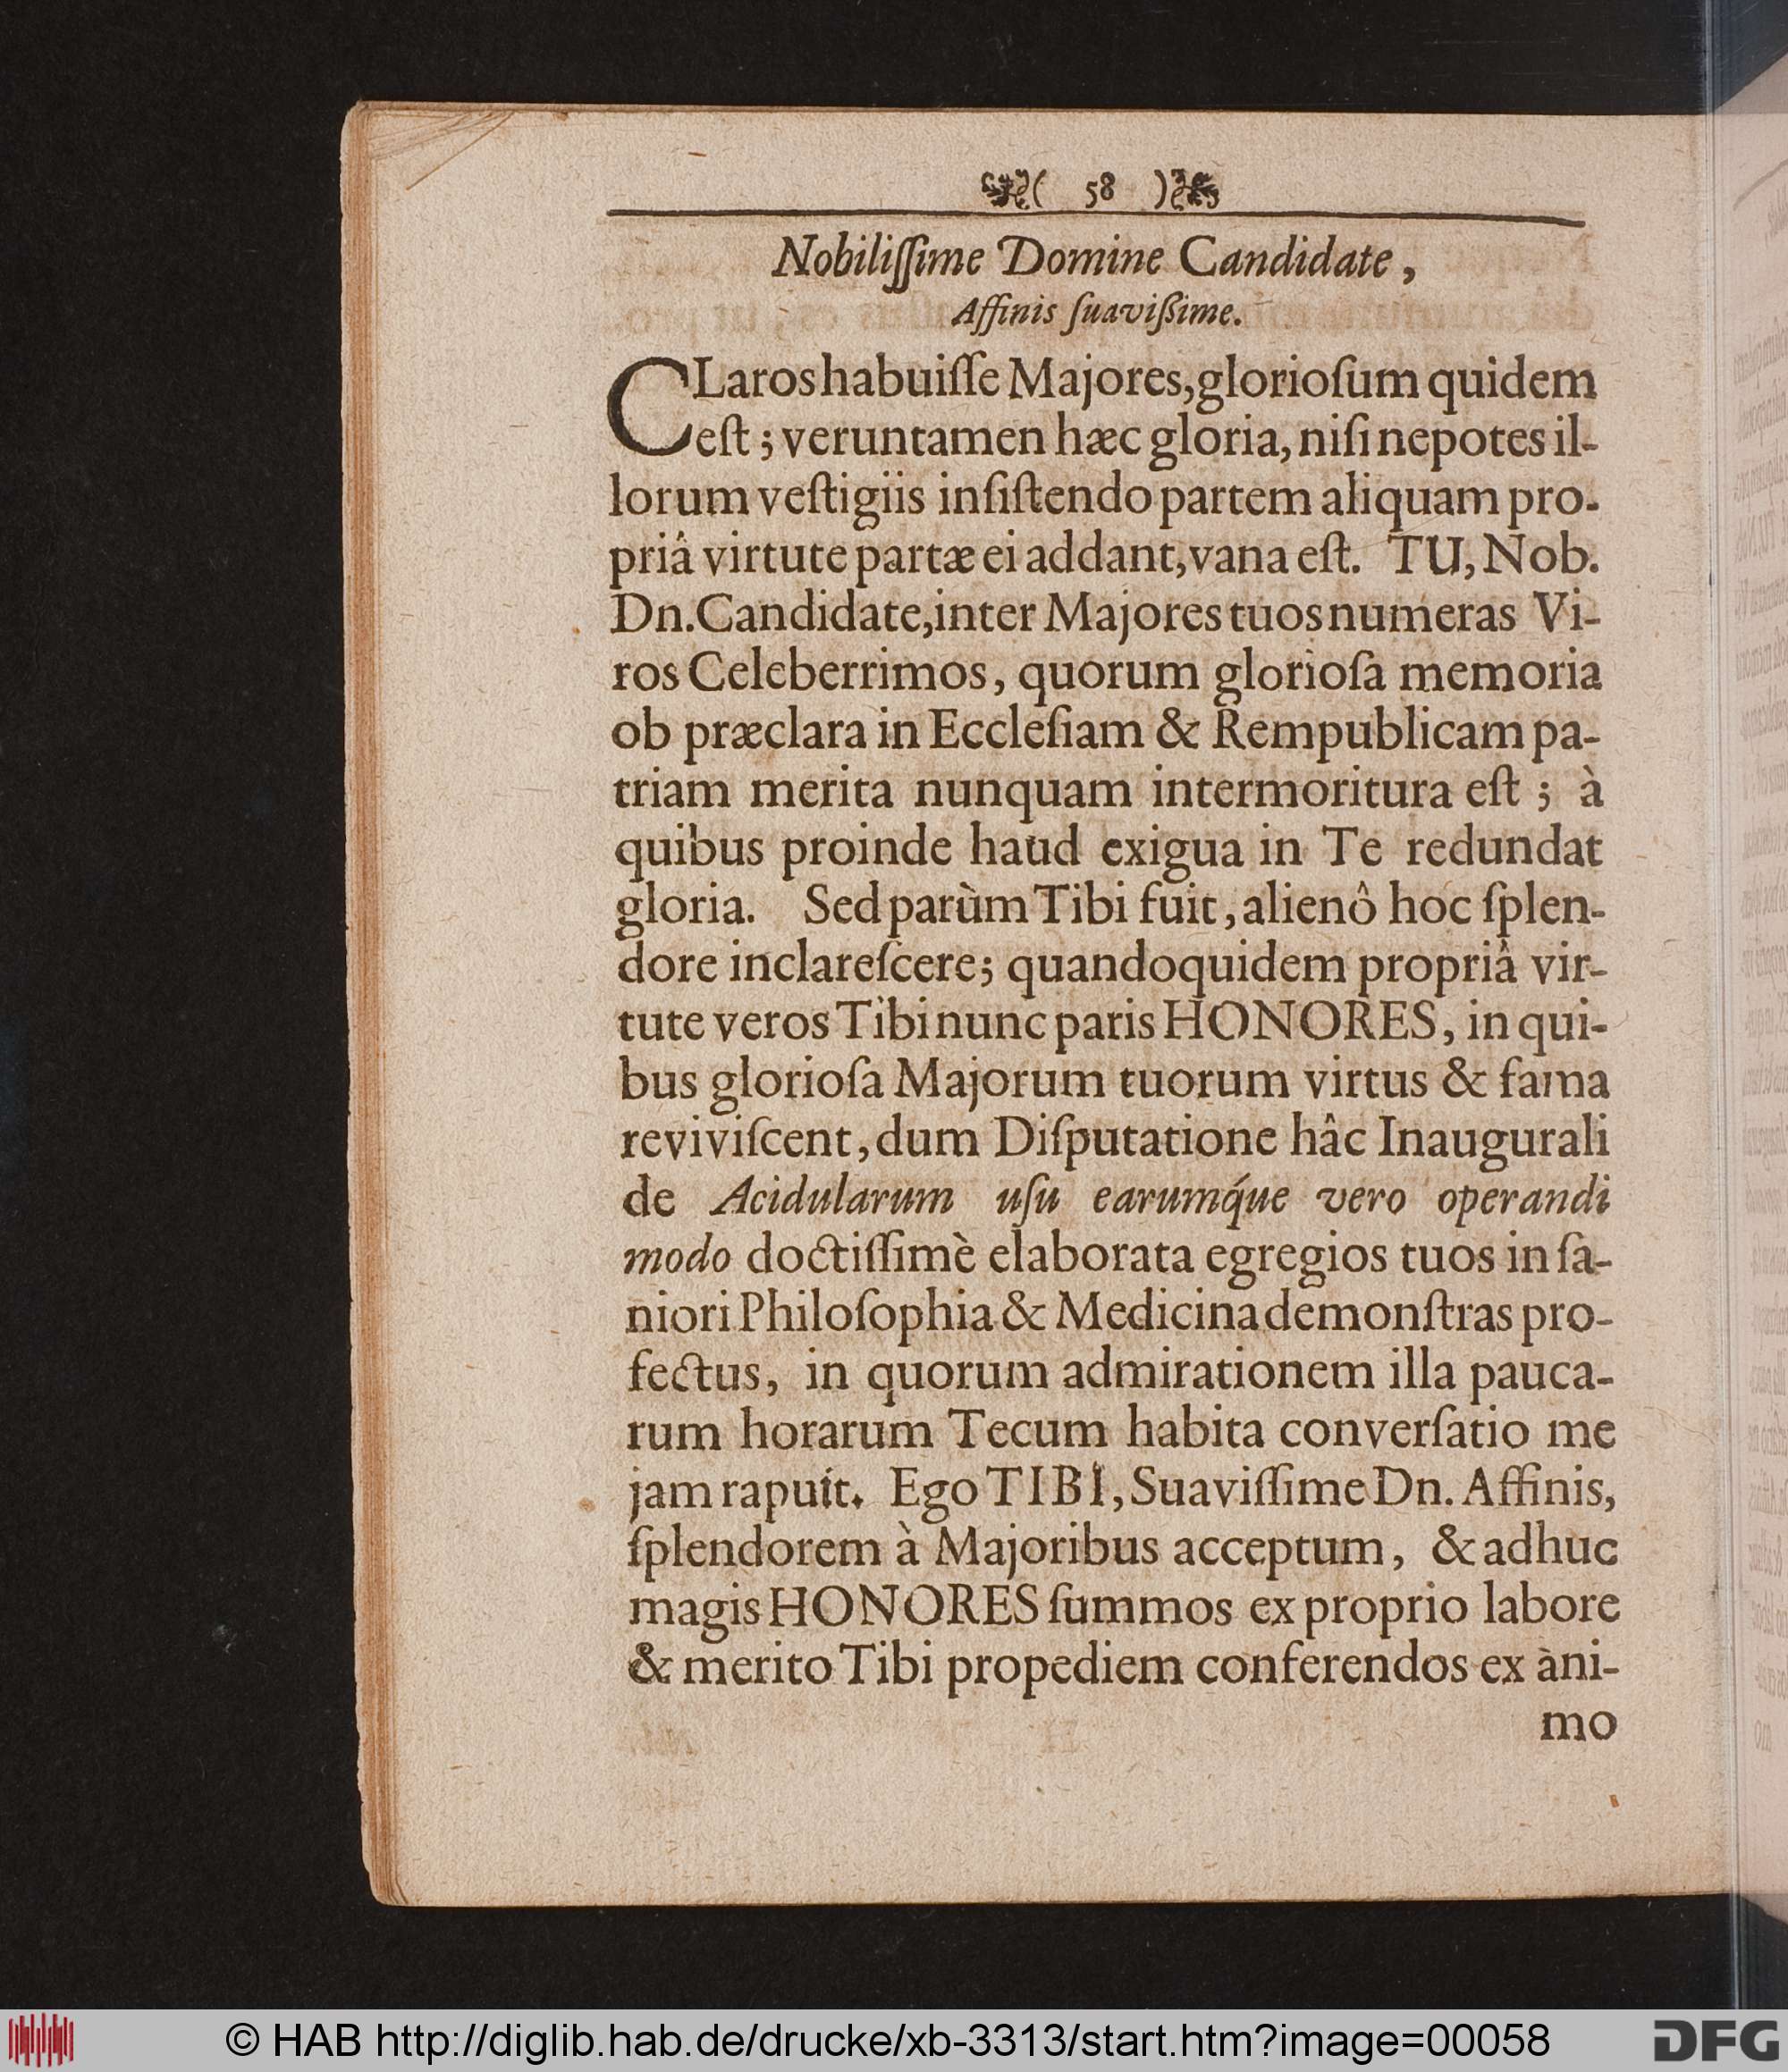 ( 58 )
Nobiliſſime Domine Candidate,
Affinis ſuaviſsime.
CLaros habuiſſe Majores, glorioſum quidem
eſt; veruntamen hæc gloria, niſi nepotes il-
lorum veſtigiis inſiſtendo partem aliquam pro-
priâ virtute partæ ei addant, vana eſt. TU, Nob.
Dn. Candidate, inter Majores tuos numeras Vi-
ros Celeberrimos, quorum glorioſa memoria
ob præclara in Eccleſiam & Rempublicam pa-
triam merita nunquam intermoritura eſt; à
quibus proinde haud exigua in Te redundat
gloria. Sed parùm Tibi fuit, alienô hoc ſplen-
dore inclareſcere; quandoquidem propriâ vir-
tute veros Tibi nunc paris HONORES, in qui-
bus glorioſa Majorum tuorum virtus & fama
reviviſcent, dum Diſputatione hâc Inaugurali
de Acidularum uſu earumq́ue vero operandi
modo doctiſſimè elaborata egregios tuos in ſa-
niori Philoſophia & Medicina demonſtras pro-
fectus, in quorum admirationem illa pauca-
rum horarum Tecum habita converſatio me
jam rapuit. Ego TIBI, Suaviſſime Dn. Affinis,
ſplendorem à Majoribus acceptum, & adhuc
magis HONORES ſummos ex proprio labore
& merito Tibi propediem conferendos ex àni-
mo
© HAB http://diglib.hab.de/drucke/xb-3313/start.htm?image=00058
DFG